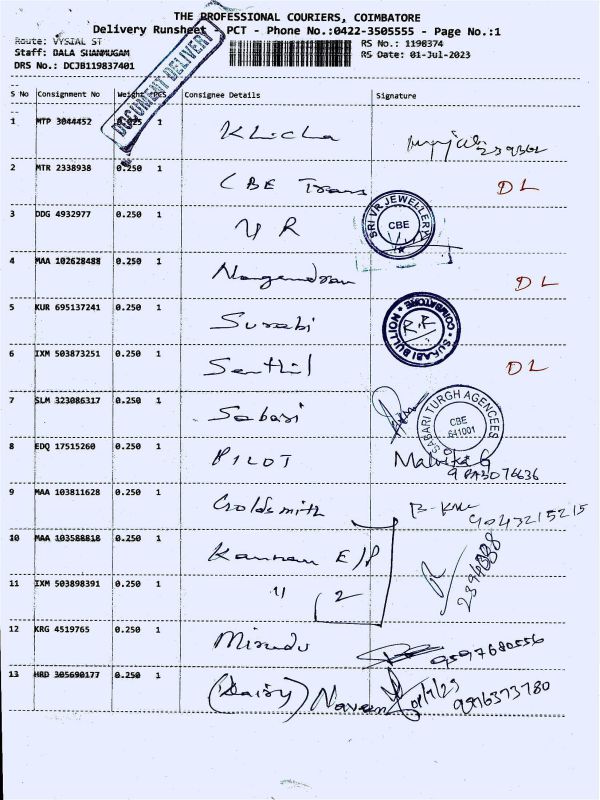 THE PROFESSIONAL COURIERS, COIMBATORE
Delivery Runsheet - PCT - Phone No.:0422-3505555 - Page No.:1
Route: VYSIAL ST
RS No.: 1190374
Staff: BALA SHANMUGAM
RS Date: 01-Jul-2023
DRS No.: DCJB119837401
DOCUMENT DELIVERY
S No Consignment No Weight PCS Consignee Details Signature
1 MTP 3044452 1
2 MTR 2338938 0.250 1 CBE Trans DL
3 DDG 4932977 0.250 1 Y R
SRI VR JEWELLERY
CBE
4 MAA 102628488 0.250 1 Nagendran DL
5 KUR 695137241 0.250 1 Surabi
COIMBATORE
SURABI BULLION
R.R
6 IXM 503873251 0.250 1 Senthil DL
7 SLM 323086317 0.250 1 Sabari
SABARI TURGH AGENCEES
CBE
641001
8 EDQ 17515260 0.250 1 PILOT Malvika G
9 MAA 103811628 0.250 1 Goldsmith
9043215215
10 MAA 103588818 0.250 1 Kannan E/P
11 IXM 503898391 0.250 1 " 2
12 KRG 4519765 0.250 1 Mirudu 9597680556
13 HRD 305690177 0.250 1 (Dairy) Naveen 9976373780